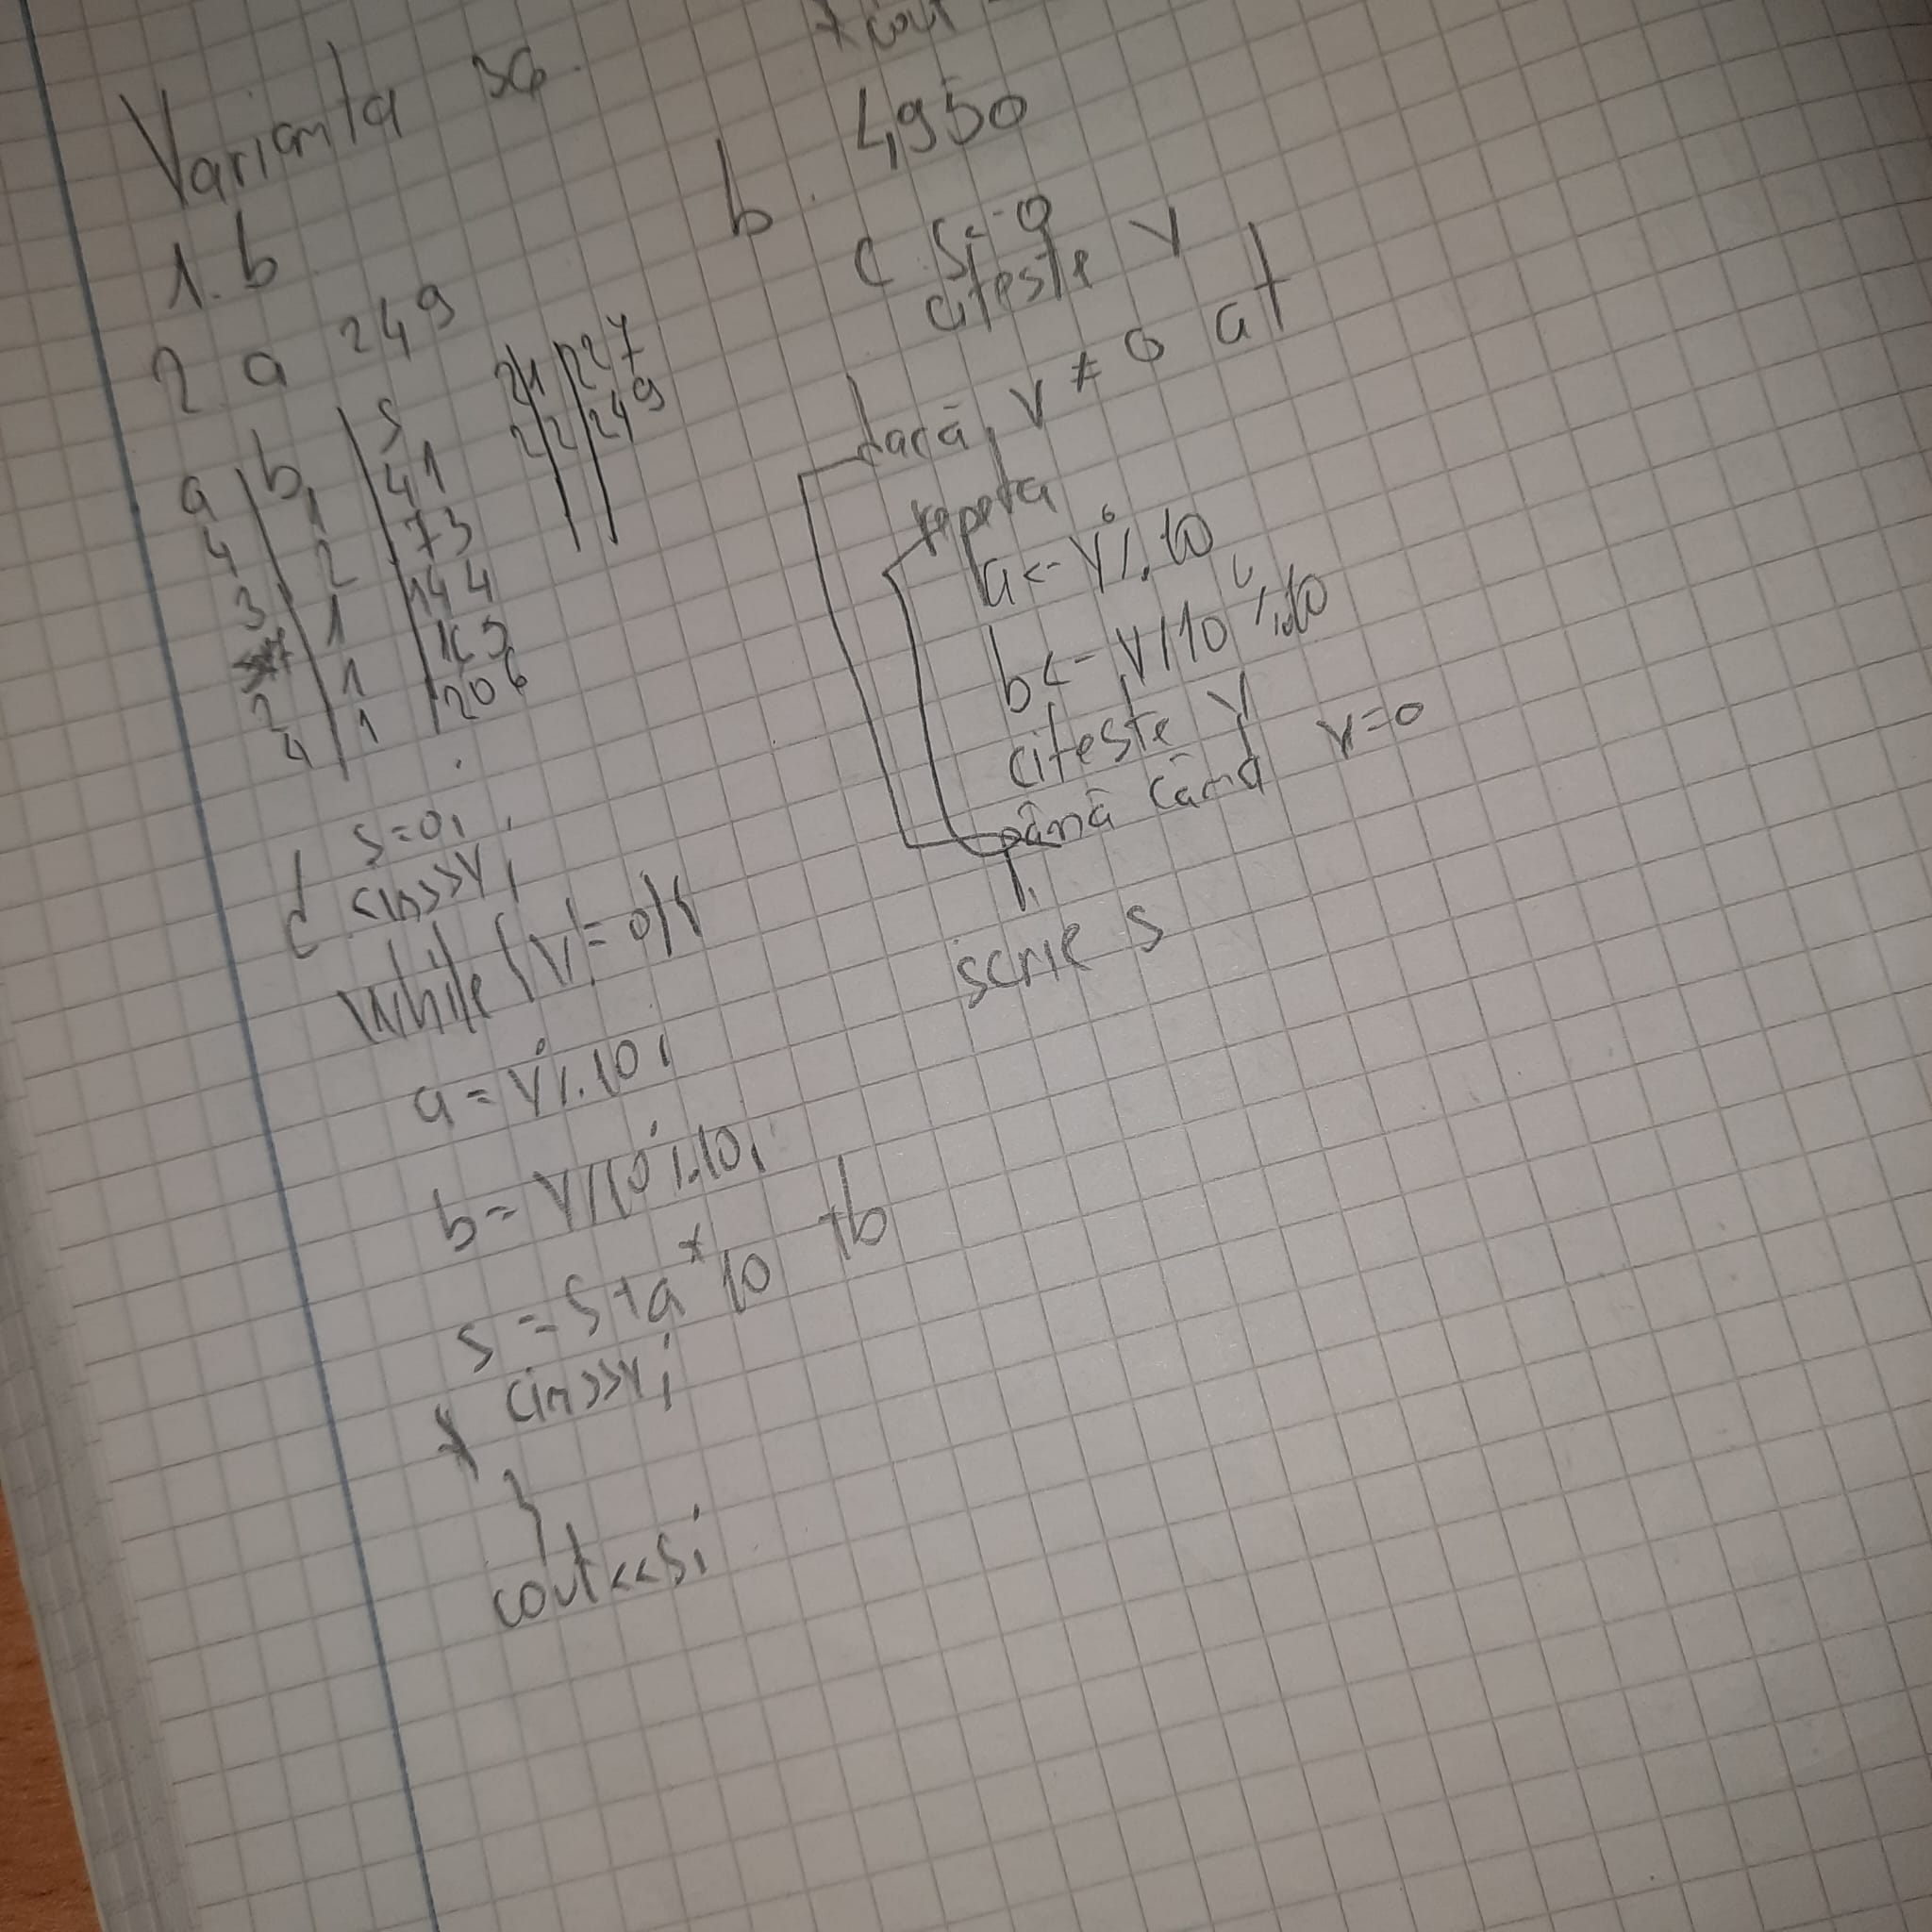 Varianta 36.
1. b
2 a 249
a | b | s
4 | 1 | 41
3 | 2 | 73
7 | 1 | 144
2 | 1 | 165
4 | 1 | 206
2 | 1 | 227
2 | 2 | 249
d s=0;
cin>>v;
while (v!=0){
a=v%10;
b=v/10%10;
s=s+a*10+b
cin>>v;
}
cout<<s;
cout
b. 4950
c. s<-0
citeste v
dacă v≠0 at
repeta
a<-v%10
b<-v/10%10
citeste v
până când v=0
scrie s